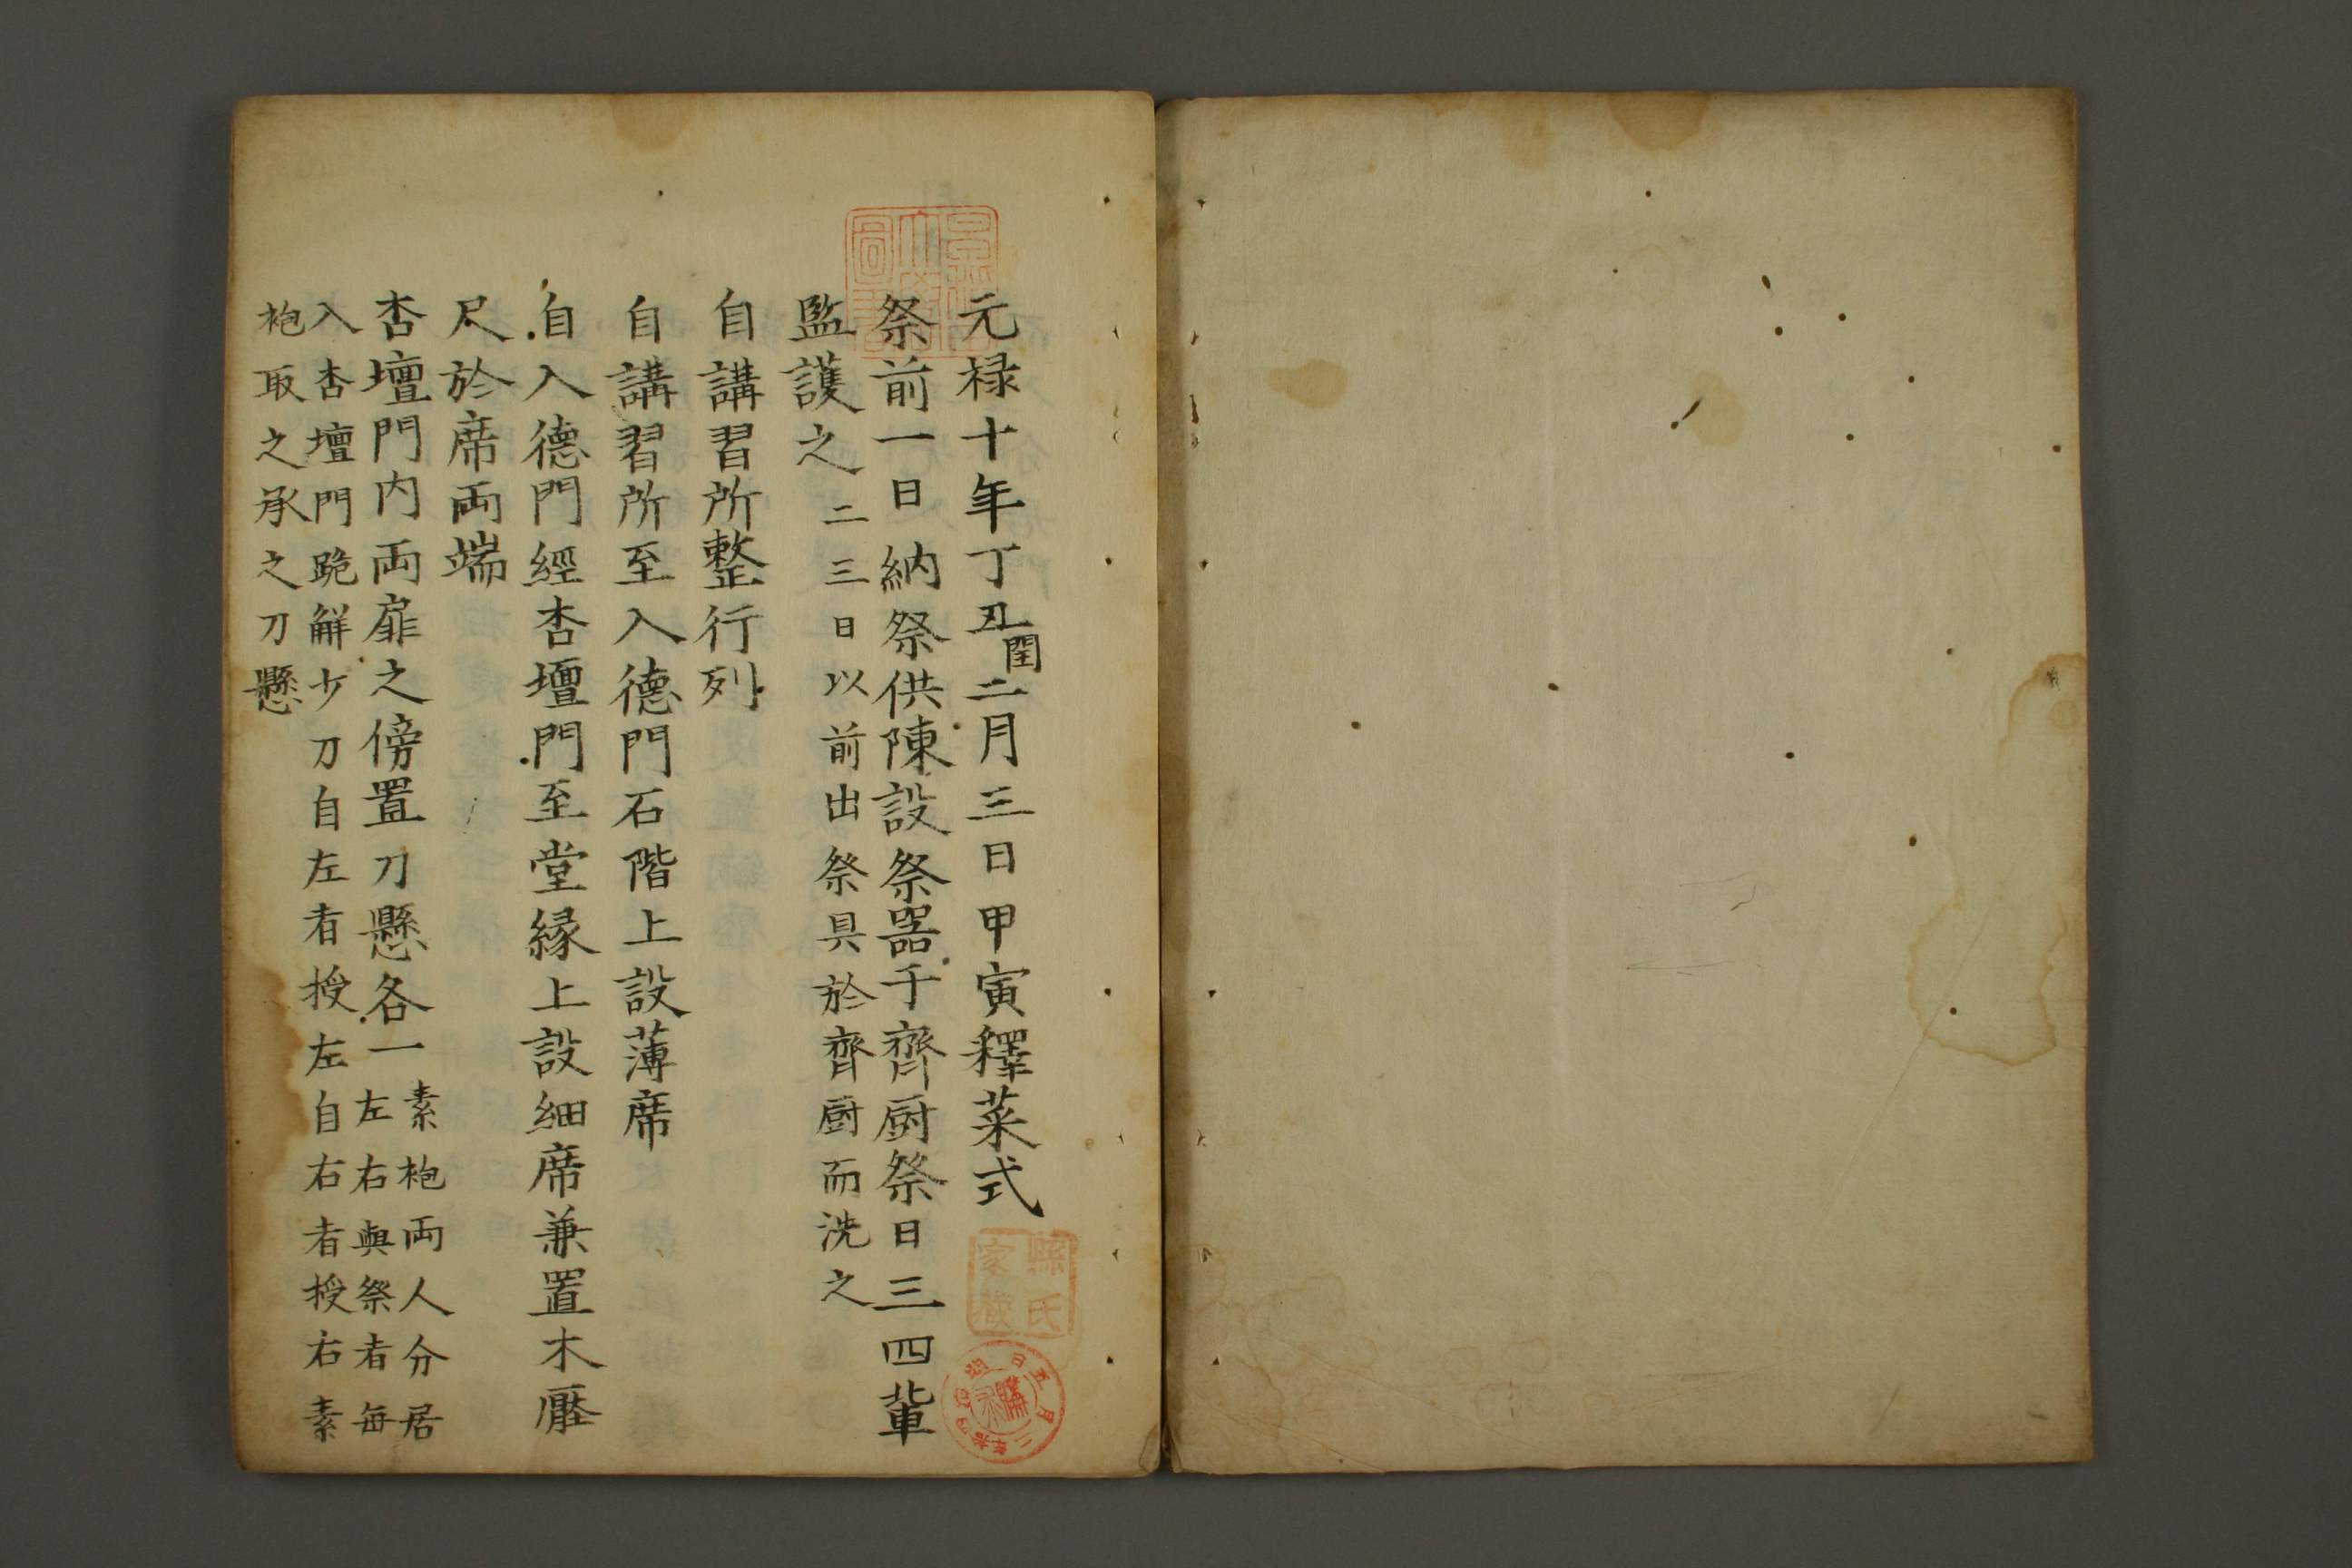 元禄十年丁丑閏二月三日甲寅釋菜式
祭前一日納祭供陳設祭器于齊厨祭日三四輩
監護之二三日以前出祭具於齊厨而洗之
自講習所整行列
自講習所至入德門石階上設薄席
自入德門經杏壇門至堂縁上設細席兼置木壓
尺於席両端
杏壇門内両扉之傍置刀懸各一素袍両人分居
左右與祭者毎
入杏壇門跪觧少刀自左者授左自右者授右素
袍取之承之刀懸
縣氏
家藏